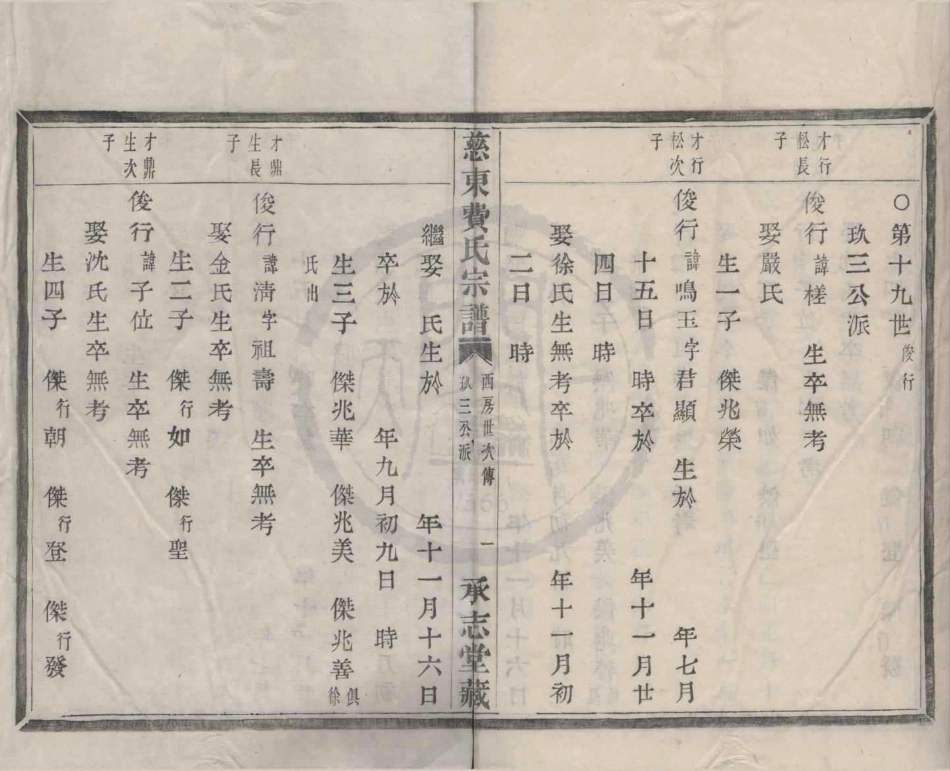 〇第十九世俊行
玖三公派
才行松長子
俊行諱槎 生卒無考
娶嚴氏
生一子 傑兆榮
才行松次子
俊行諱鳴玉字君顯 生於 年七月
十五日 時卒於 年十一月廿
四日 時
娶徐氏生無考卒於 年十一月初
二日 時
慈東費氏宗譜 酉房世次傳 玖三公派 一 承志堂藏
繼娶 氏生於 年十一月十六日
卒於 年九月初九日 時
生三子 傑兆華 傑兆美 傑兆善俱徐
氏出
才鼎生長子
俊行諱淸字祖壽 生卒無考
娶金氏生卒無考
生二子 傑行如 傑行聖
才鼎生次子
俊行諱子位 生卒無考
娶沈氏生卒無考
生四子 傑行朝 傑行登 傑行發